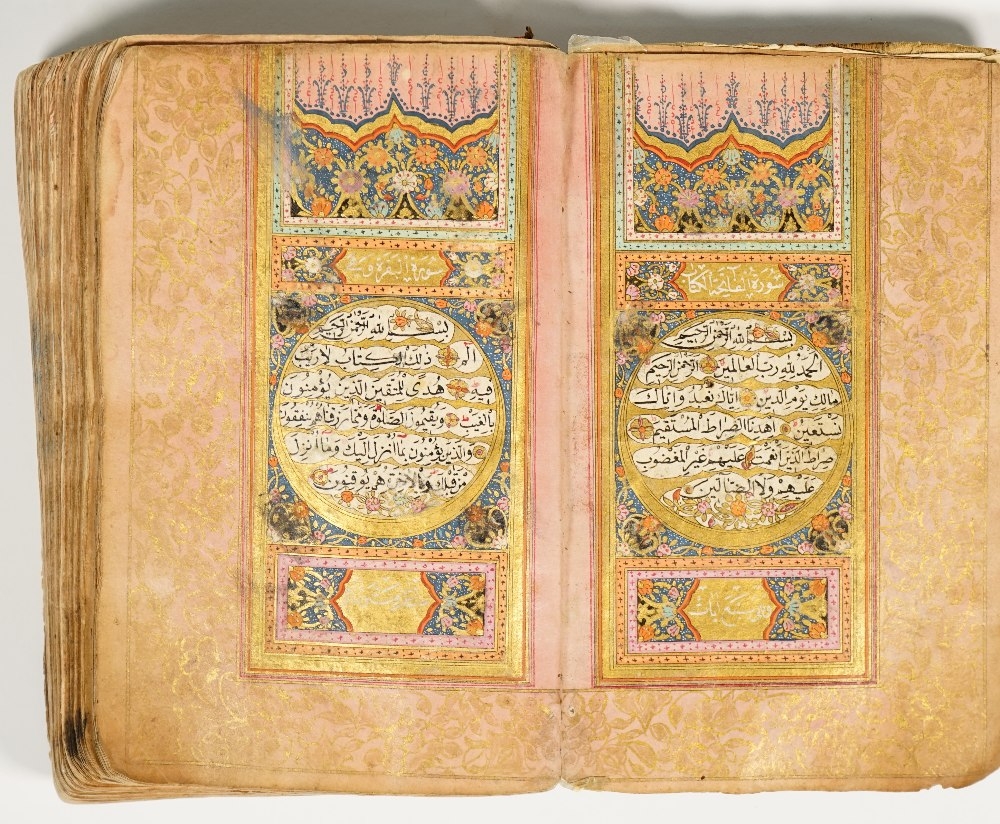 سورة الفاتحة الكتاب
بسم الله الرحمن الرحيم
الحمد لله رب العالمين الرحمن الرحيم
مالك يوم الدين اياك نعبد واياك
نستعين اهدنا الصراط المستقيم
صراط الذين انعمت عليهم غير المغضوب
عليهم ولا الضالين
سورة البقرة
بسم الله الرحمن الرحيم
الم ذلك الكتاب لا ريب
فيه هدى للمتقين الذين يؤمنون
بالغيب ويقيمون الصلوة ومما رزقناهم ينفقون
والذين يؤمنون بما انزل اليك وما انزل
من قبلك وبالاخرة هم يوقنون